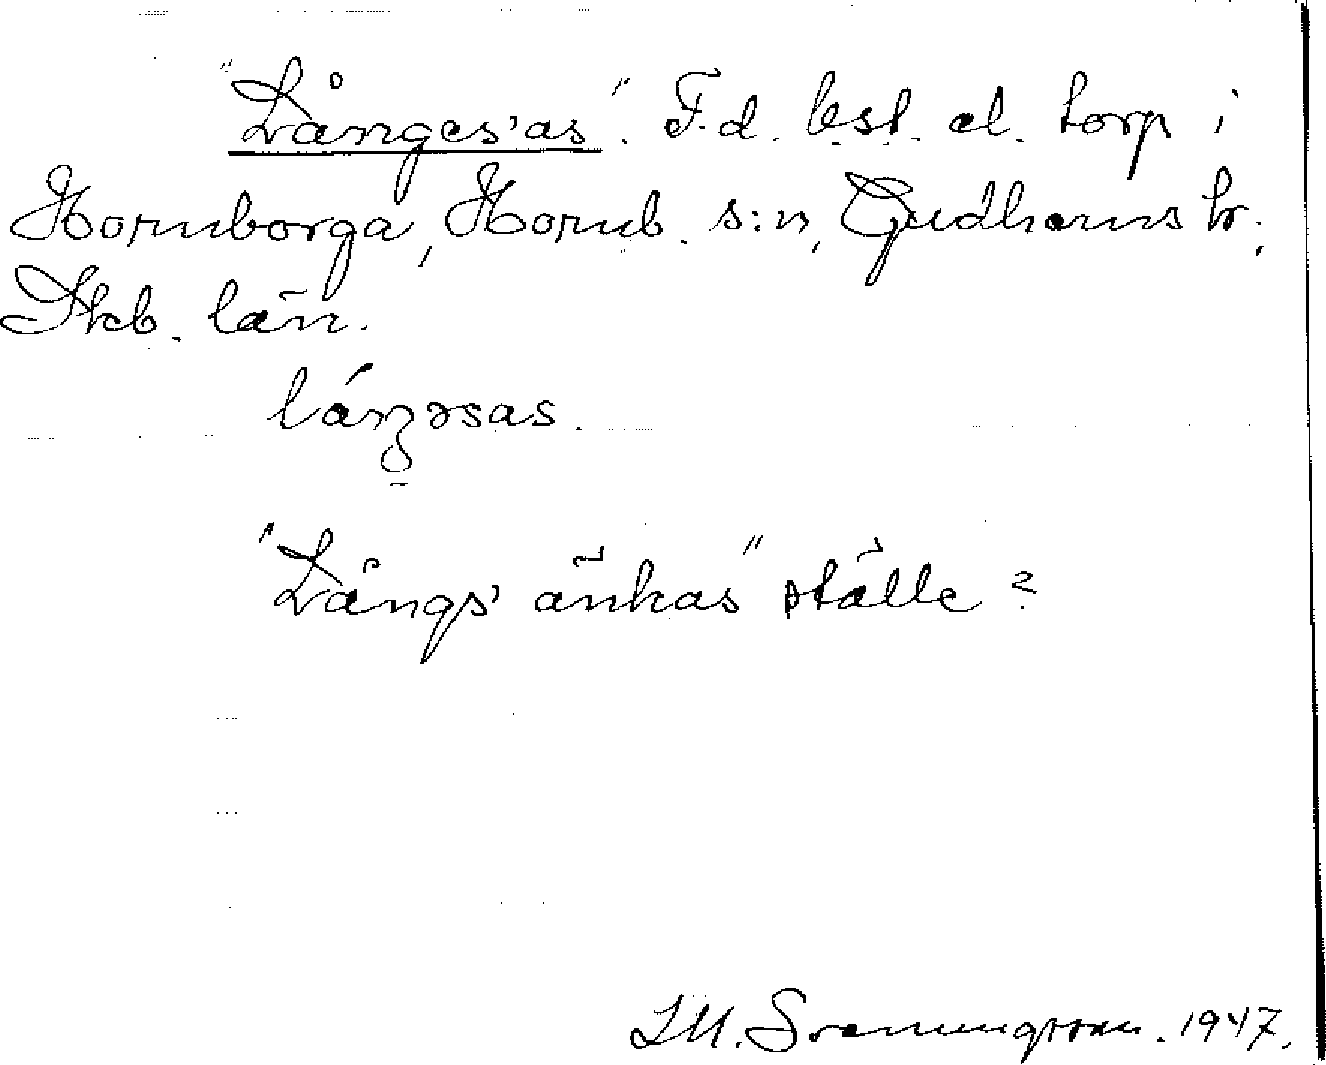 "Långes'as". F.d. bst. el. torp i
Hornborga, Hornb. s:n, Gudhems hr.,
Skb. län.
láŋəsas.
"Långs' änkas" ställe?
I.M. Svenningsson. 1947.